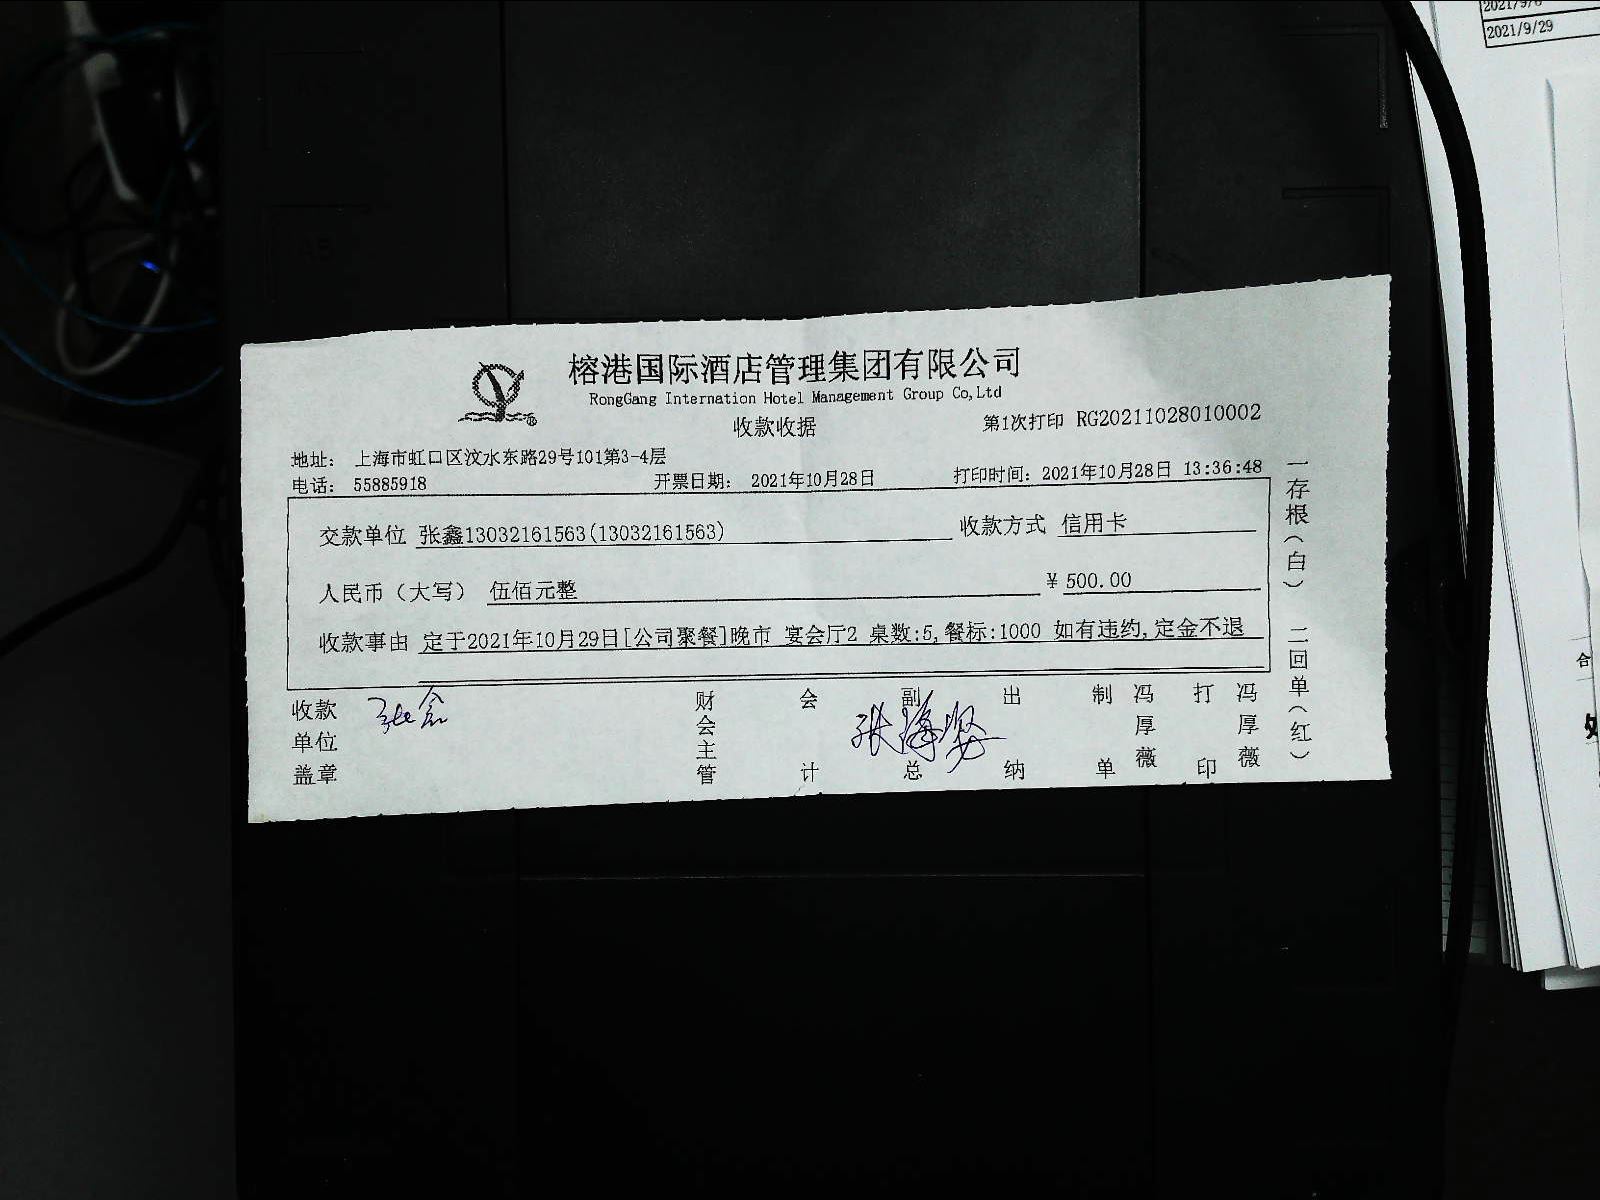 2021/9/6
2021/9/29
榕港国际酒店管理集团有限公司
RongGang Internation Hotel Management Group Co,Ltd
收款收据
第1次打印 RG20211028010002
地址: 上海市虹口区汶水东路29号101第3-4层
电话: 55885918
开票日期: 2021年10月28日
打印时间: 2021年10月28日 13:36:48
交款单位 张鑫13032161563(13032161563)
收款方式 信用卡
人民币(大写) 伍佰元整
¥ 500.00
收款事由 定于2021年10月29日[公司聚餐]晚市 宴会厅2 桌数:5,餐标:1000 如有违约,定金不退
收款单位盖章
财会主管
会计
副总
出纳
制单
冯厚薇
打印
冯厚薇
一存根(白)
二回单(红)
合